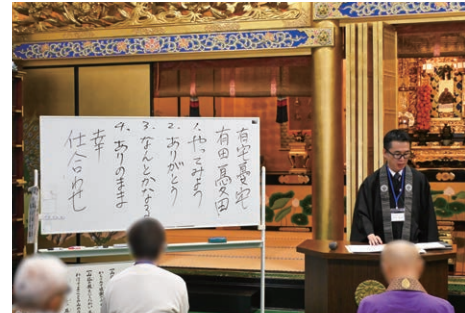 有宅憂宅
有田憂田
1. やってみよう
2. ありがとう
3. なんとかなる
4. ありのまま
幸
仕合わせ